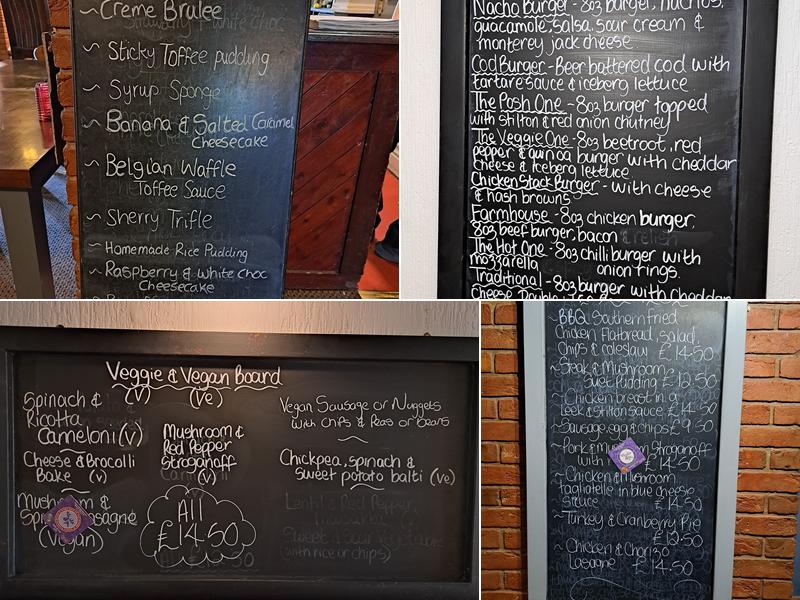 ~ Creme Brulee
~ Sticky Toffee pudding
~ Syrup Sponge
~ Banana & Salted Caramel
Cheesecake
~ Belgian Waffle
Toffee Sauce
~ Sherry Trifle
~ Homemade Rice Pudding
~ Raspberry & White Choc
Cheesecake
Nacho Burger - 8oz burger, nachos,
guacamole, salsa, sour cream &
monterey jack cheese
Cod Burger - Beer battered cod with
tartare sauce & iceberg lettuce
The Posh One - 8oz burger topped
with stilton & red onion chutney
The Veggie One - 8oz beetroot, red
pepper & quinoa burger with cheddar
cheese & iceberg lettuce
Chicken Stack Burger - with cheese
& hash browns
Farmhouse - 8oz chicken burger,
8oz beef burger, bacon & relish
The Hot One - 8oz chilli burger with
mozzarella onion rings.
Traditional - 8oz burger with Cheddar
Cheese Double
Veggie & Vegan Board
(V) (Ve)
Spinach &
Ricotta
Canneloni (v)
Cheese & Brocalli
Bake (v)
Mushroom &
Lasagne
(Vegan)
Mushroom &
Red Pepper
Stroganoff
(v)
All
£14.50
Vegan Sausage or Nuggets
with Chips & Peas or beans
Chickpea, spinach &
Sweet potato balti (ve)
Lentil & Red Pepper
Sweet & Sour Vegetable
(with rice or chips)
~ BBQ Southern Fried
Chicken Flatbread, salad,
Chips & coleslaw £14.50
~ Steak & Mushroom
Suet Pudding £12.50
~ Chicken breast in a
Leek & Stilton sauce £14.50
~ Sausage, egg & chips £9.50
~ Pork & Stroganoff
with £14.50
~ Chicken & Mushroom
Tagliatelle in blue cheese
Sauce £14.50
~ Turkey & Cranberry Pie
£12.50
~ Chicken & Chorizo
Lasagne £14.50